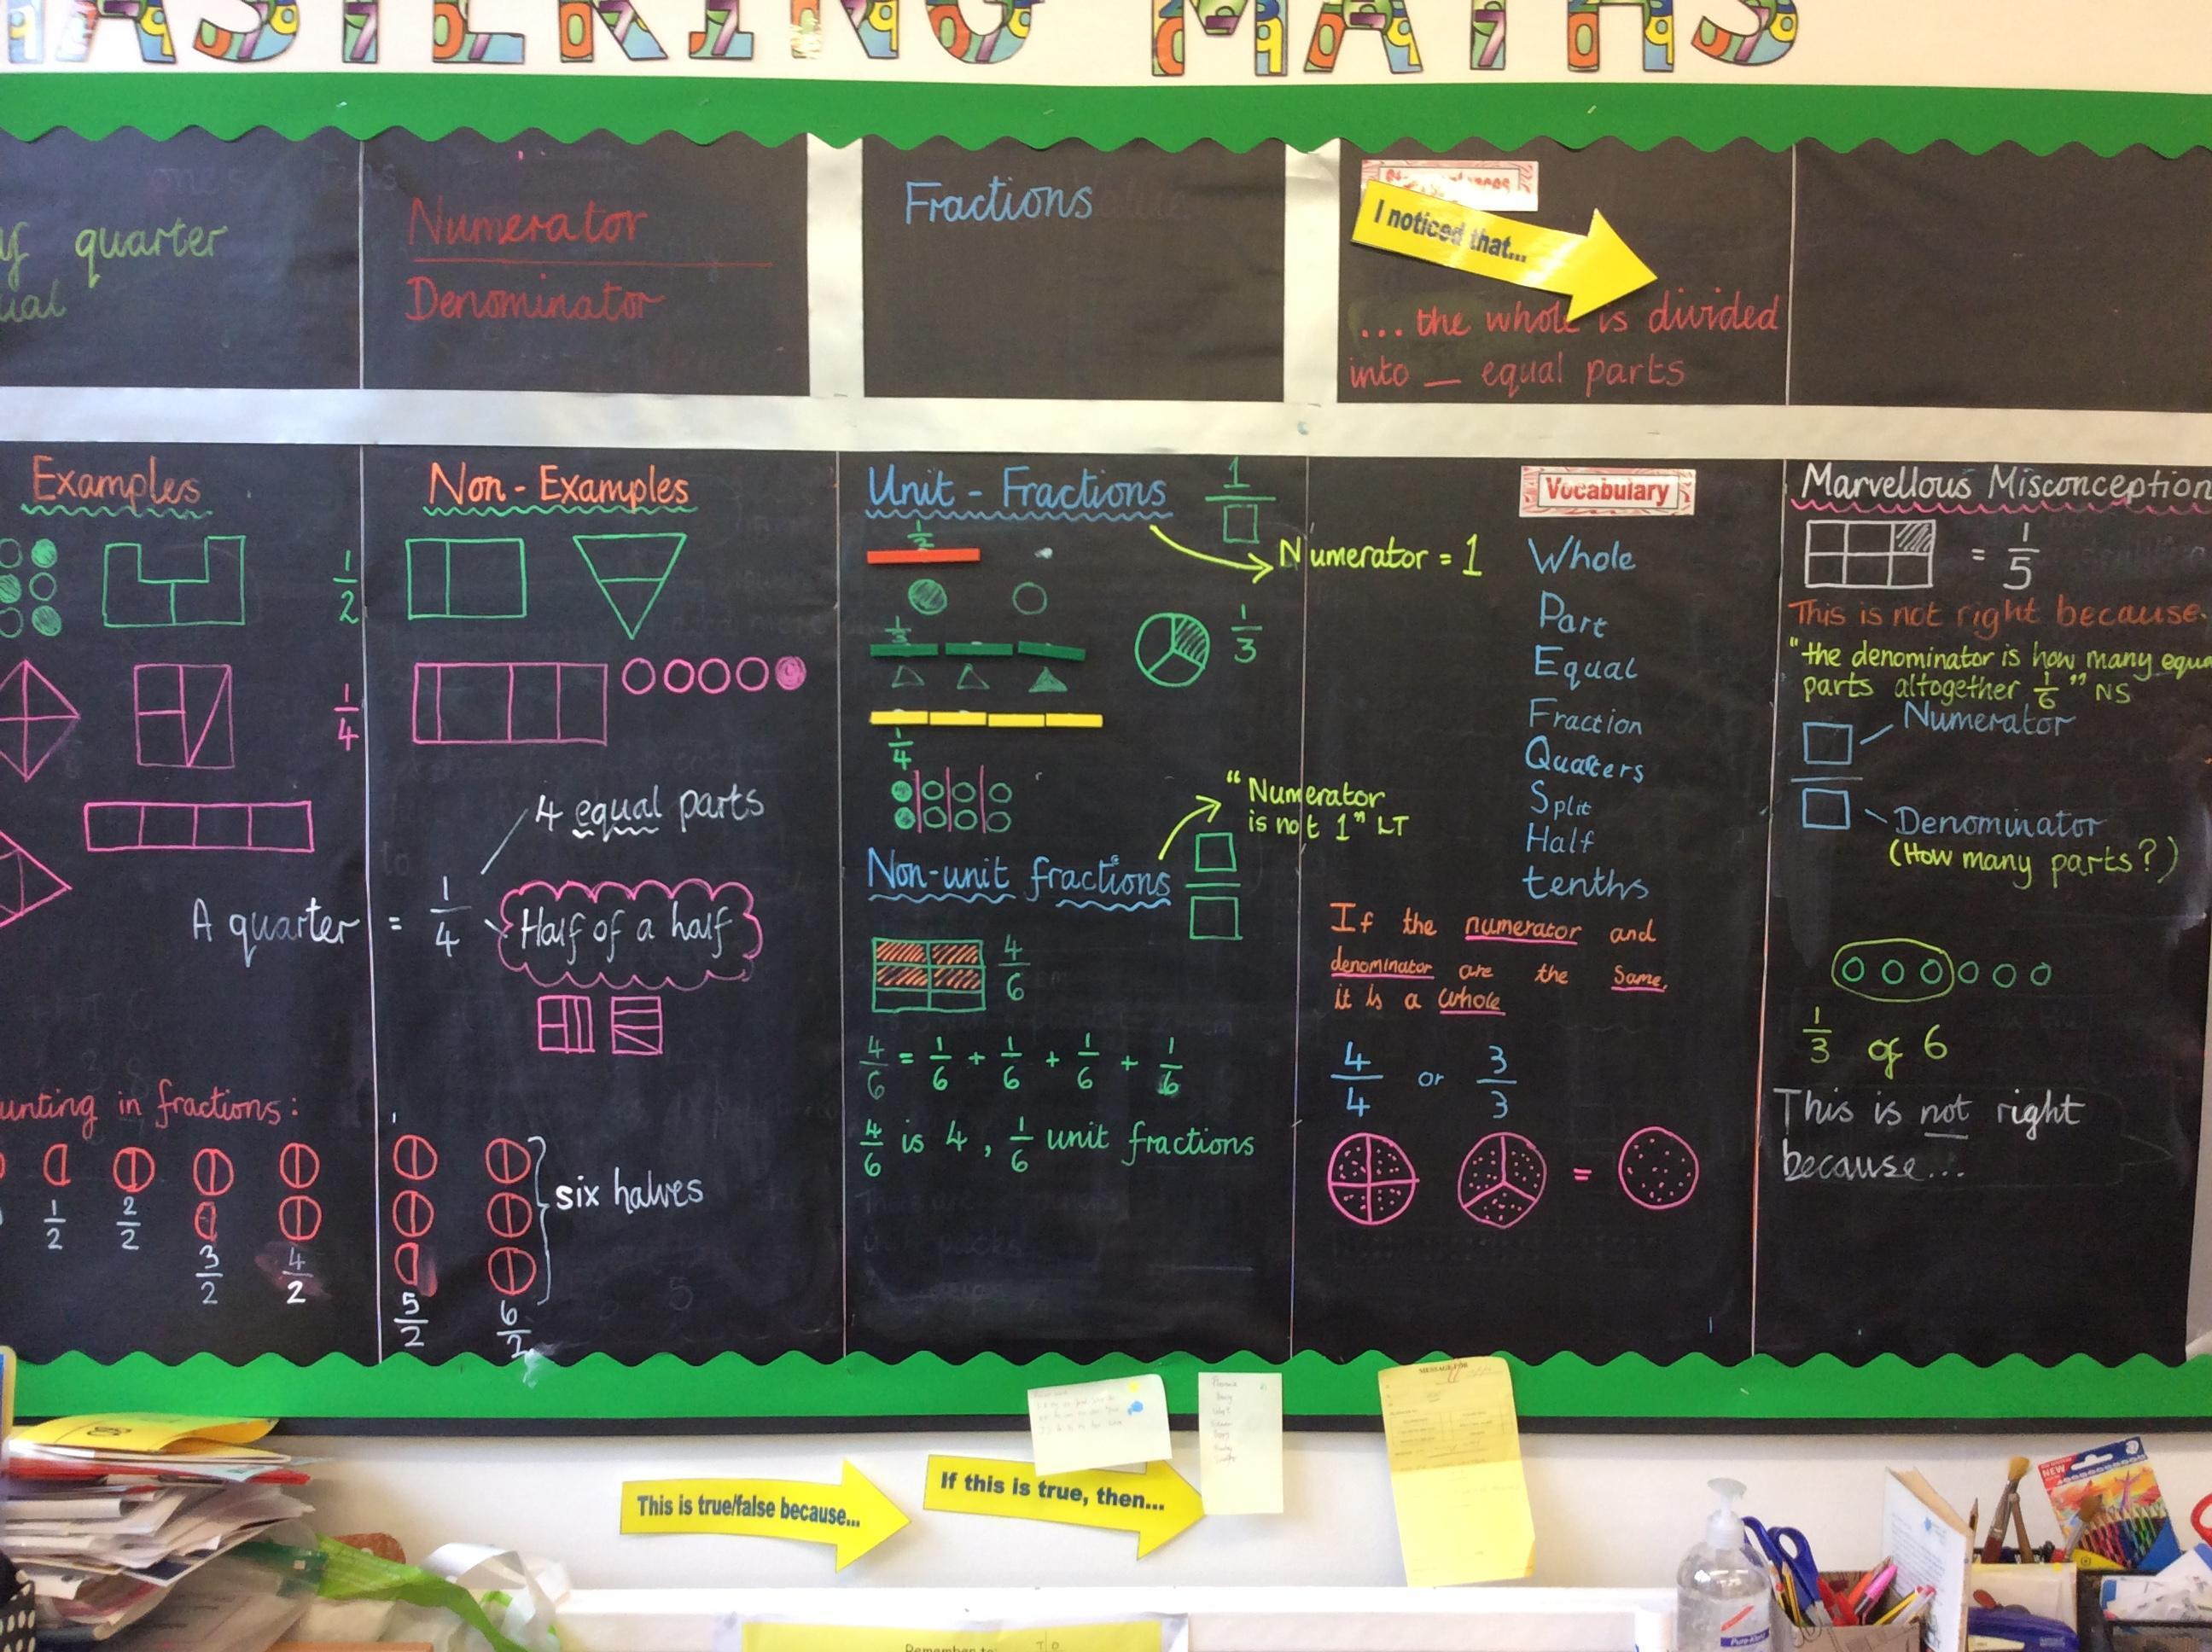 MASTERING MATHS
ones tens
quarter
Numerator
Denominator
Fractions
I noticed that...
... the whole is divided
into _ equal parts
Examples
1/2
1/4
Non-Examples
4 equal parts
A quarter = 1/4
Half of a half
in fractions:
1/2
2/2
3/2
4/2
5/2
6/2
six halves
Unit-Fractions
1/□
Numerator = 1
1/2
1/3
1/3
1/4
"Numerator
is not 1" LT
Non-unit fractions
4/6
4/6 = 1/6 + 1/6 + 1/6 + 1/6
4/6 is 4, 1/6 unit fractions
Vocabulary
Whole
Part
Equal
Fraction
Quarters
Split
Half
tenths
If the numerator and
denominator are the same,
it is a whole
4/4 or 3/3
=
Marvellous Misconception
= 1/5
This is not right because
"the denominator is how many equa
parts altogether 1/6" NS
Numerator
Denominator
(How many parts?)
1/3 of 6
This is not right
because...
MESSAGE FOR
This is true/false because...
If this is true, then...
NEW
Remember to:
T O